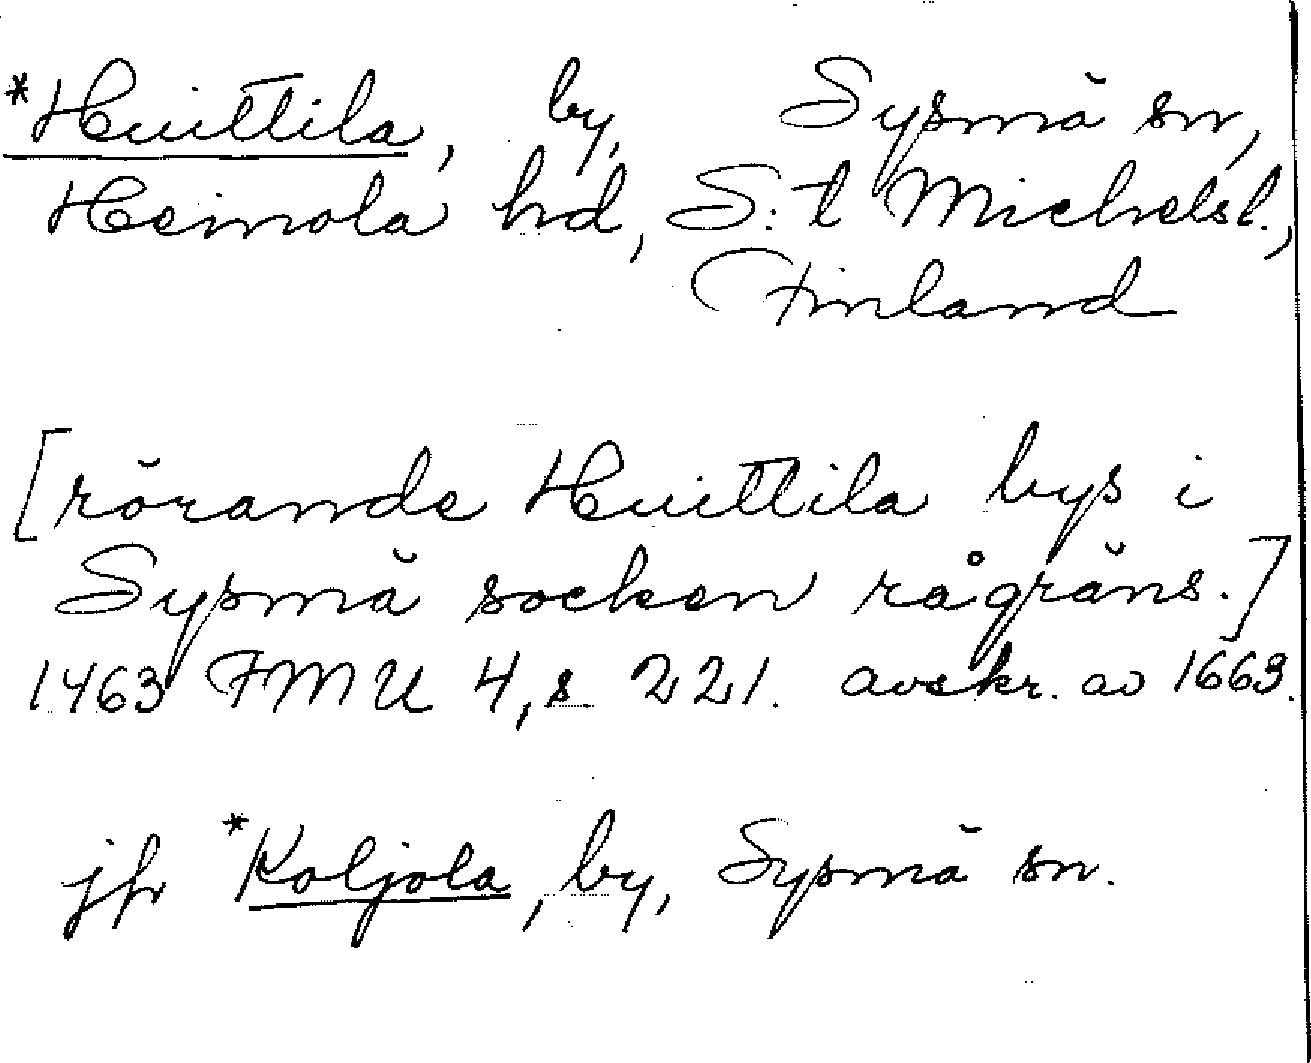 *Huittila, by, Sysmä sn,
Heinola hd, S:t Michelsl.,
Finland
[rörande Huittila bys i
Sysmä socken rågräns.]
1463 FMU 4, s 221. avskr. av 1663.
jfr *Koljola, by, Sysmä sn.